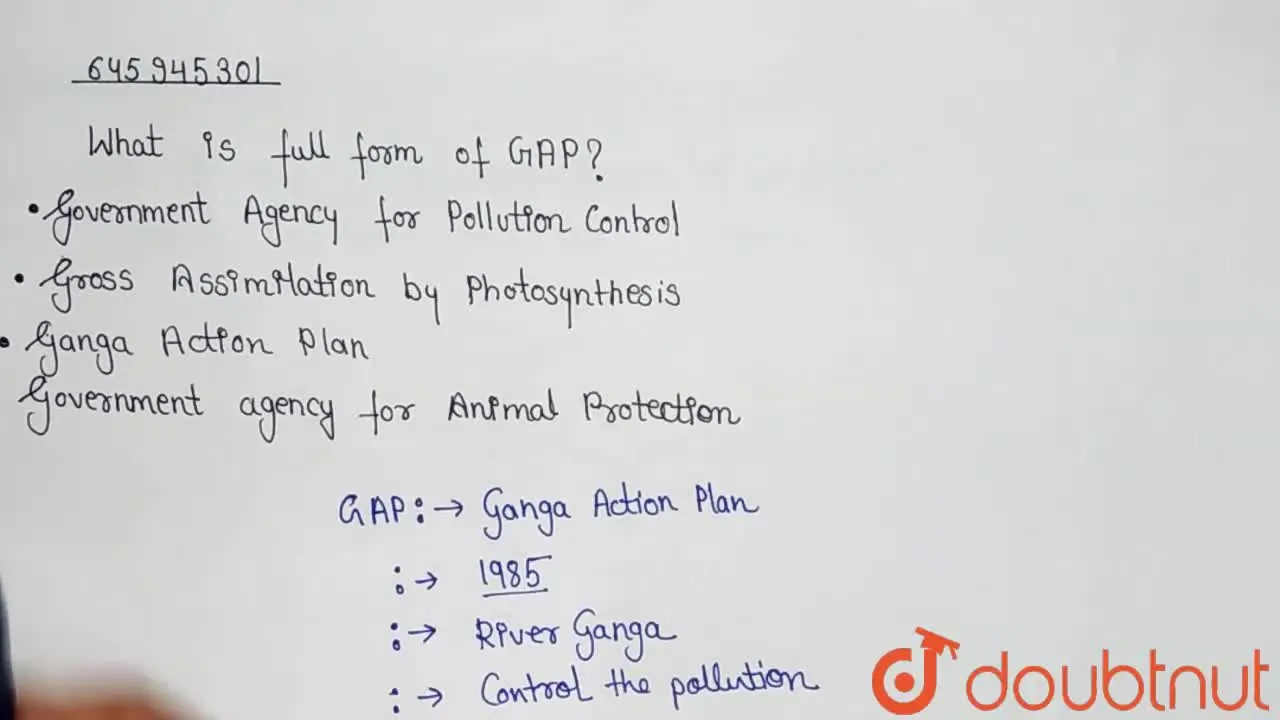 645945301
What is full form of GAP?
• Government Agency for Pollution Control
• Gross Assimilation by Photosynthesis
• Ganga Action Plan
Government agency for Animal Protection
GAP :→ Ganga Action Plan
:→ 1985
:→ River Ganga
:→ Control the pollution
doubtnut